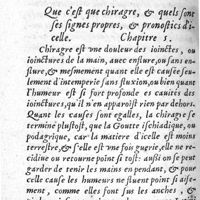 Que c'est que chiragre, & quels sont
ses signes propres, & pronostics d'i-
celle. Chapitre 5.
Chiragre est vne douleur des ioinctes, ou
ioinctures de la main, auec enflure, ou sans en-
flure, & mesmement quant elle est causée seu-
lement d'intemperie sans fluxion, ou bien quant
l'humeur est si fort profonde es cauitez des
ioinctures, qu'il n'en apparoist rien par dehors.
Quant les causes sont egalles, la chiragre se
termine plustost, que la Goutte ischiadique, ou
podagrique, car la matiere d'icelle est moins
terrestre, & si elle est vne fois guerie, elle ne re-
cidiue ou retourne point si tost: aussi on se peut
garder de tenir les mains en pendant, & pour
celle cause les humeurs ne fluent point si aise-
ment, comme elles font sus les anches, &